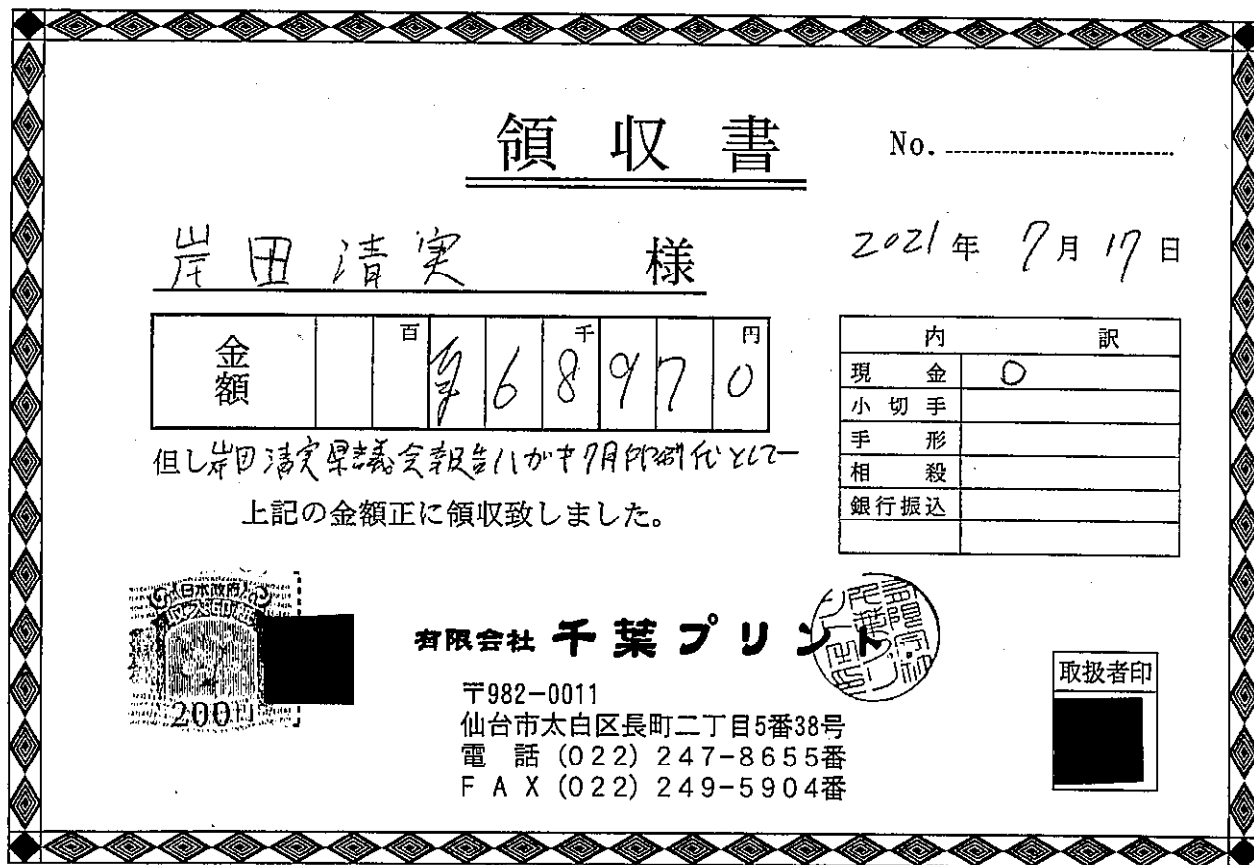 領収書
No.
岸田清実 様
2021年 7月 17日
金額 百 千 円
¥68970
但し岸田清実県議会報告ハガキ7月印刷代として
上記の金額正に領収致しました。
内訳
現金 0
小切手
手形
相殺
銀行振込
日本政府
収入印紙
200円
有限会社 千葉プリント
〒982-0011
仙台市太白区長町二丁目5番38号
電話 (022) 247-8655番
FAX (022) 249-5904番
取扱者印